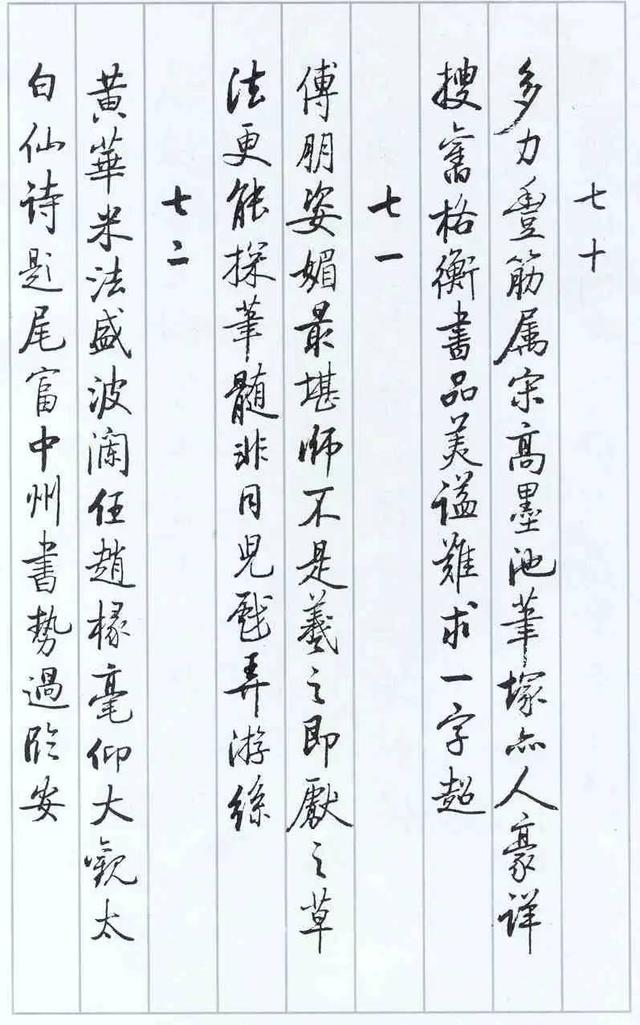 七十
多力豊筋属宋高墨池筆塚亦人豪详
搜舊格衡書品美谥難求一字超
七一
傅朋姿媚最堪师不是羲之即獻之草
法更能探筆髓非同児戲弄游絲
七二
黄華米法盛波澜任趙椽毫仰大觀太
白仙诗题尾富中州書勢過臨安